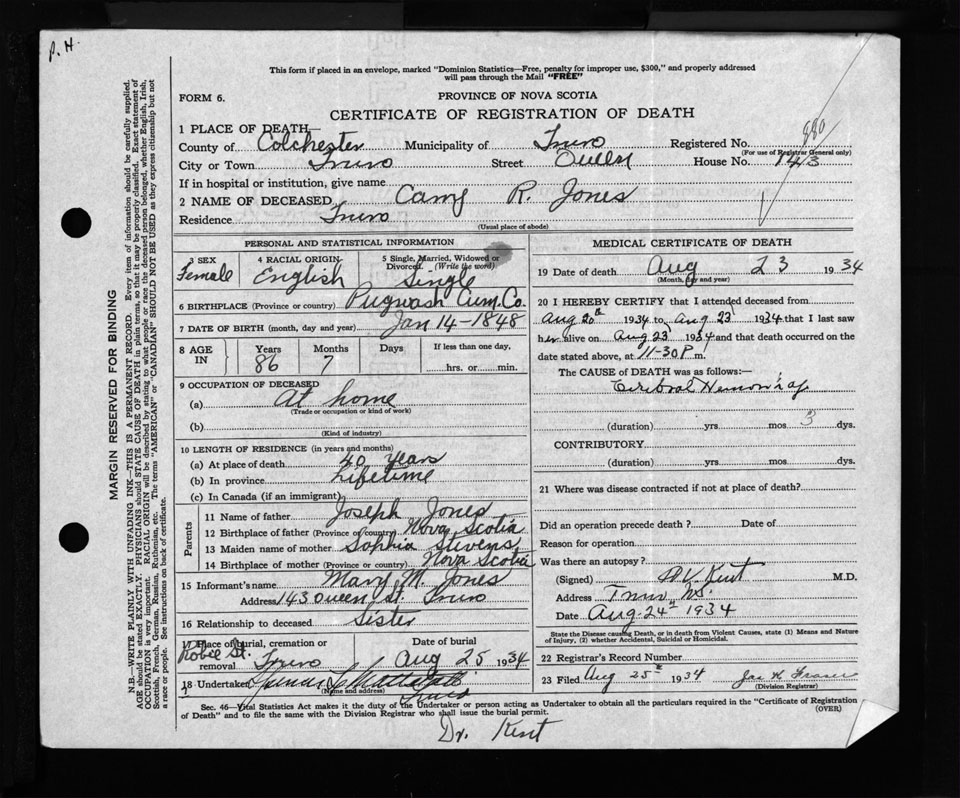 P. H.
This form if placed in an envelope, marked "Dominion Statistics—Free, penalty for improper use, $300," and properly addressed
will pass through the Mail "FREE"
FORM 6.
PROVINCE OF NOVA SCOTIA
CERTIFICATE OF REGISTRATION OF DEATH
880
1 PLACE OF DEATH—
County of Colchester Municipality of Truro Registered No.
(For use of Registrar General only)
City or Town Truro Street Queen House No. 143
If in hospital or institution, give name
2 NAME OF DECEASED R. Jones
Residence Truro
(Usual place of abode)
PERSONAL AND STATISTICAL INFORMATION
3 SEX Female
4 RACIAL ORIGIN English
5 Single, Married, Widowed or Divorced. (Write the word) Single
6 BIRTHPLACE (Province or country) Pugwash Cum. Co.
7 DATE OF BIRTH (month, day and year) Jan 14-1848
8 AGE IN Years 86 Months 7 Days If less than one day, hrs. or min.
9 OCCUPATION OF DECEASED
(a) At home
(Trade or occupation or kind of work)
(b)
(Kind of industry)
10 LENGTH OF RESIDENCE (in years and months)
(a) At place of death 40 years
(b) In province Lifetime
(c) In Canada (if an immigrant)
Parents
11 Name of father Joseph Jones
12 Birthplace of father (Province or country) Nova Scotia
13 Maiden name of mother Sophia Stevens
14 Birthplace of mother (Province or country) Nova Scotia
15 Informant's name Mary M. Jones
Address 143 Queen St. Truro
16 Relationship to deceased Sister
17 Place of burial, cremation or removal Robie St. Truro
Date of burial Aug 25 1934
18 Undertaker
(Name and address)
Truro
MEDICAL CERTIFICATE OF DEATH
19 Date of death Aug 23 1934
(Month, day and year)
20 I HEREBY CERTIFY that I attended deceased from
Aug 20th 1934 to Aug 23 1934 that I last saw
her alive on Aug 23 1934 and that death occurred on the
date stated above, at 11-30 P m.
The CAUSE OF DEATH was as follows:—
Cerebral Hemorrhage
(duration) yrs. mos. 3 dys.
CONTRIBUTORY
(duration) yrs. mos. dys.
21 Where was disease contracted if not at place of death?
Did an operation precede death? Date of
Reason for operation
Was there an autopsy?
(Signed) Kent M.D.
Address Truro N.S.
Date Aug. 24th 1934
State the Disease causing Death, or in death from Violent Causes, state (1) Means and Nature
of Injury, (2) whether Accidental, Suicidal or Homicidal.
22 Registrar's Record Number
23 Filed Aug 25th 1934 Jas H. Fraser
(Division Registrar)
Sec. 46—Vital Statistics Act makes it the duty of the Undertaker or person acting as Undertaker to obtain all the particulars required in the "Certificate of Registration
of Death" and to file the same with the Division Registrar who shall issue the burial permit. (OVER)
Dr. Kent
MARGIN RESERVED FOR BINDING
N.B.—WRITE PLAINLY WITH UNFADING INK—THIS IS A PERMANENT RECORD. Every item of information should be carefully supplied.
AGE should be stated EXACTLY. PHYSICIANS should STATE CAUSE OF DEATH in plain terms, so that it may be properly classified. Exact statement of
OCCUPATION is very important. RACIAL ORIGIN will be described by stating to what people or race the deceased person belonged, whether English, Irish,
Scottish, French, German, Russian, Ruthenian, etc. The terms "AMERICAN" or "CANADIAN" SHOULD NOT BE USED as they express citizenship but not
a race or people. See instructions on back of certificate.